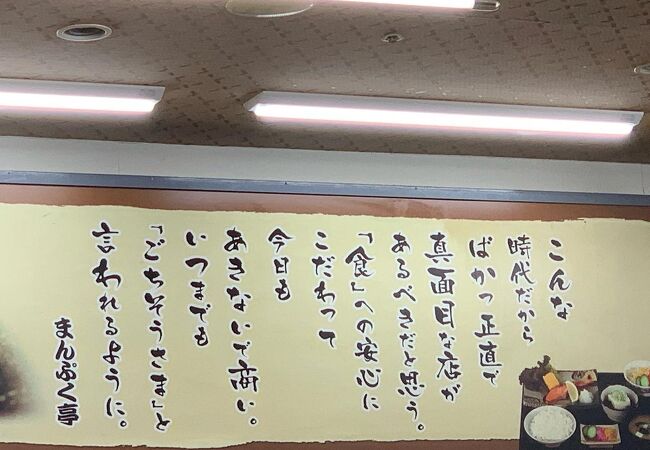 こんな
時代だから
ばかっ正直で
真面目な店が
あるべきだと思う。
「食」への安心に
こだわって
今日も
あきないで商い。
いつまでも
「ごちそうさま」と
言われるように。
まんぷく亭